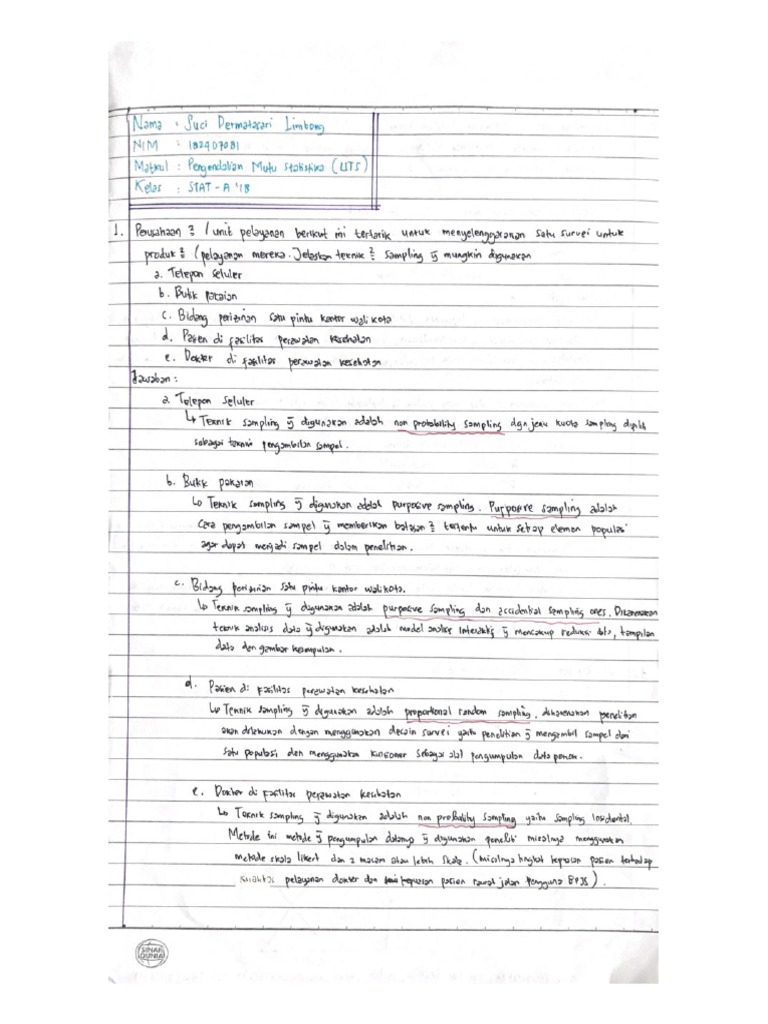 Nama : Suci Permatasari Limbong
NIM : 182407081
Matkul : Pengendalian Mutu Statistika (UTS)
Kelas : STAT - A '18
1. Perusahaan 2 / unit pelayanan berikut ini tertarik untuk menyelenggarakan satu survei untuk
produk 2 / pelayanan mereka. Jelaskan teknik 2 sampling yg mungkin digunakan
a. Telepon seluler
b. Butik pakaian
c. Bidang perizinan satu pintu kantor walikota
d. Pasien di fasilitas perawatan kesehatan
e. Dokter di fasilitas perawatan kesehatan
Jawaban :
a. Telepon seluler
↳ Teknik sampling yg digunakan adalah non probability sampling dgn jenis kuota sampling dipilih
sebagai teknik pengambilan sampel.
b. Butik pakaian
↳ Teknik sampling yg digunakan adalah purposive sampling. Purposive sampling adalah
cara pengambilan sampel yg memberikan batasan 2 tertentu untuk setiap elemen populasi
agar dapat menjadi sampel dalam penelitian.
c. Bidang perizinan satu pintu kantor walikota.
↳ Teknik sampling yg digunakan adalah purposive sampling dan accidental sampling. Dikarenakan
teknik analisis data yg digunakan adalah model analisis interaktif yg mencakup reduksi data, tampilan
data dan gambar kesimpulan.
d. Pasien di fasilitas perawatan kesehatan
↳ Teknik sampling yg digunakan adalah proportional random sampling, dikarenakan penelitian
akan dilakukan dengan menggunakan desain survei yaitu penelitian yg mengambil sampel dari
satu populasi dan menggunakan kuisioner sebagai alat pengumpulan data pokok.
e. Dokter di fasilitas perawatan kesehatan
↳ Teknik sampling yg digunakan adalah non probability sampling yaitu sampling Insidental.
Metode ini metode yg pengumpulan datanya yg digunakan peneliti misalnya menggunakan
metode skala likert dan 2 macam atau lebih skala. (misalnya tingkat kepuasan pasien terhadap
kualitas pelayanan dokter dan kepuasan pasien rawat jalan pengguna BPJS).
SINAR
DUNIA